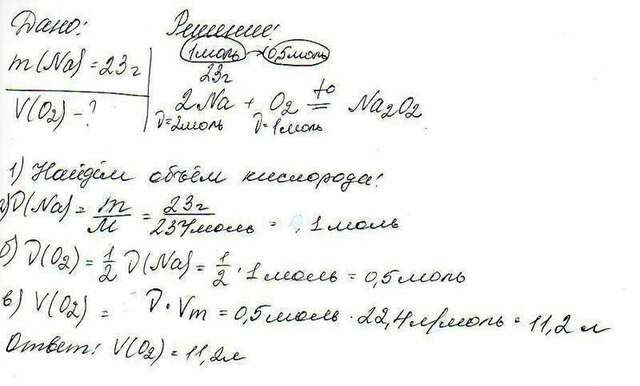 Дано:
Решение:
m(Na) = 23г
V(O₂) - ?
1моль → 0,5моль
23г
2Na + O₂ t° = Na₂O₂
ν=2моль ν=1моль
1) Найдём объём кислорода:
а) ν(Na) = m/M = 23г/23г/моль = 1моль
б) ν(O₂) = 1/2 ν(Na) = 1/2 · 1моль = 0,5моль
в) V(O₂) = ν · Vm = 0,5моль · 22,4л/моль = 11,2 л
Ответ: V(O₂) = 11,2л